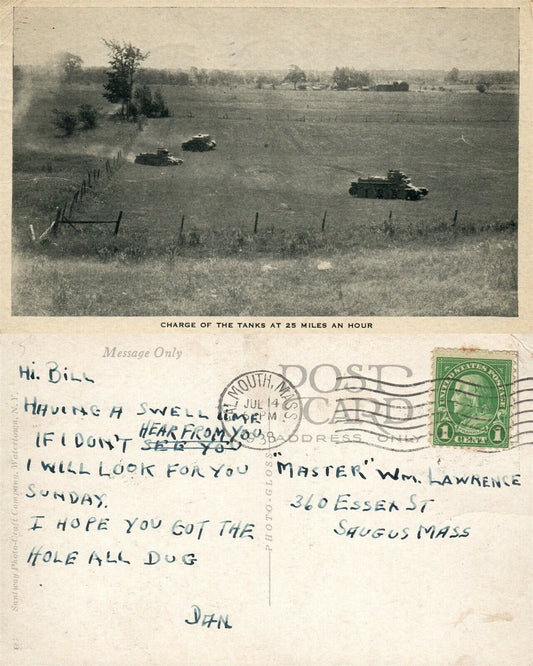 CHARGE OF THE TANKS AT 25 MILES AN HOUR
Message Only
POST CARD
ADDRESS ONLY
FALMOUTH, MASS.
JUL 14
PM
1938
UNITED STATES POSTAGE
1 CENT 1
Hi. BILL
HAVING A SWELL TIME
HEAR FROM YOU
IF I DON'T SEE YOU
I WILL LOOK FOR YOU
SUNDAY.
I HOPE YOU GOT THE
HOLE ALL DUG
DAN
"MASTER" WM. LAWRENCE
360 ESSEX ST
SAUGUS MASS
PHOTO-GLOSS
Santway Photo-Craft Company, Watertown, N.Y.